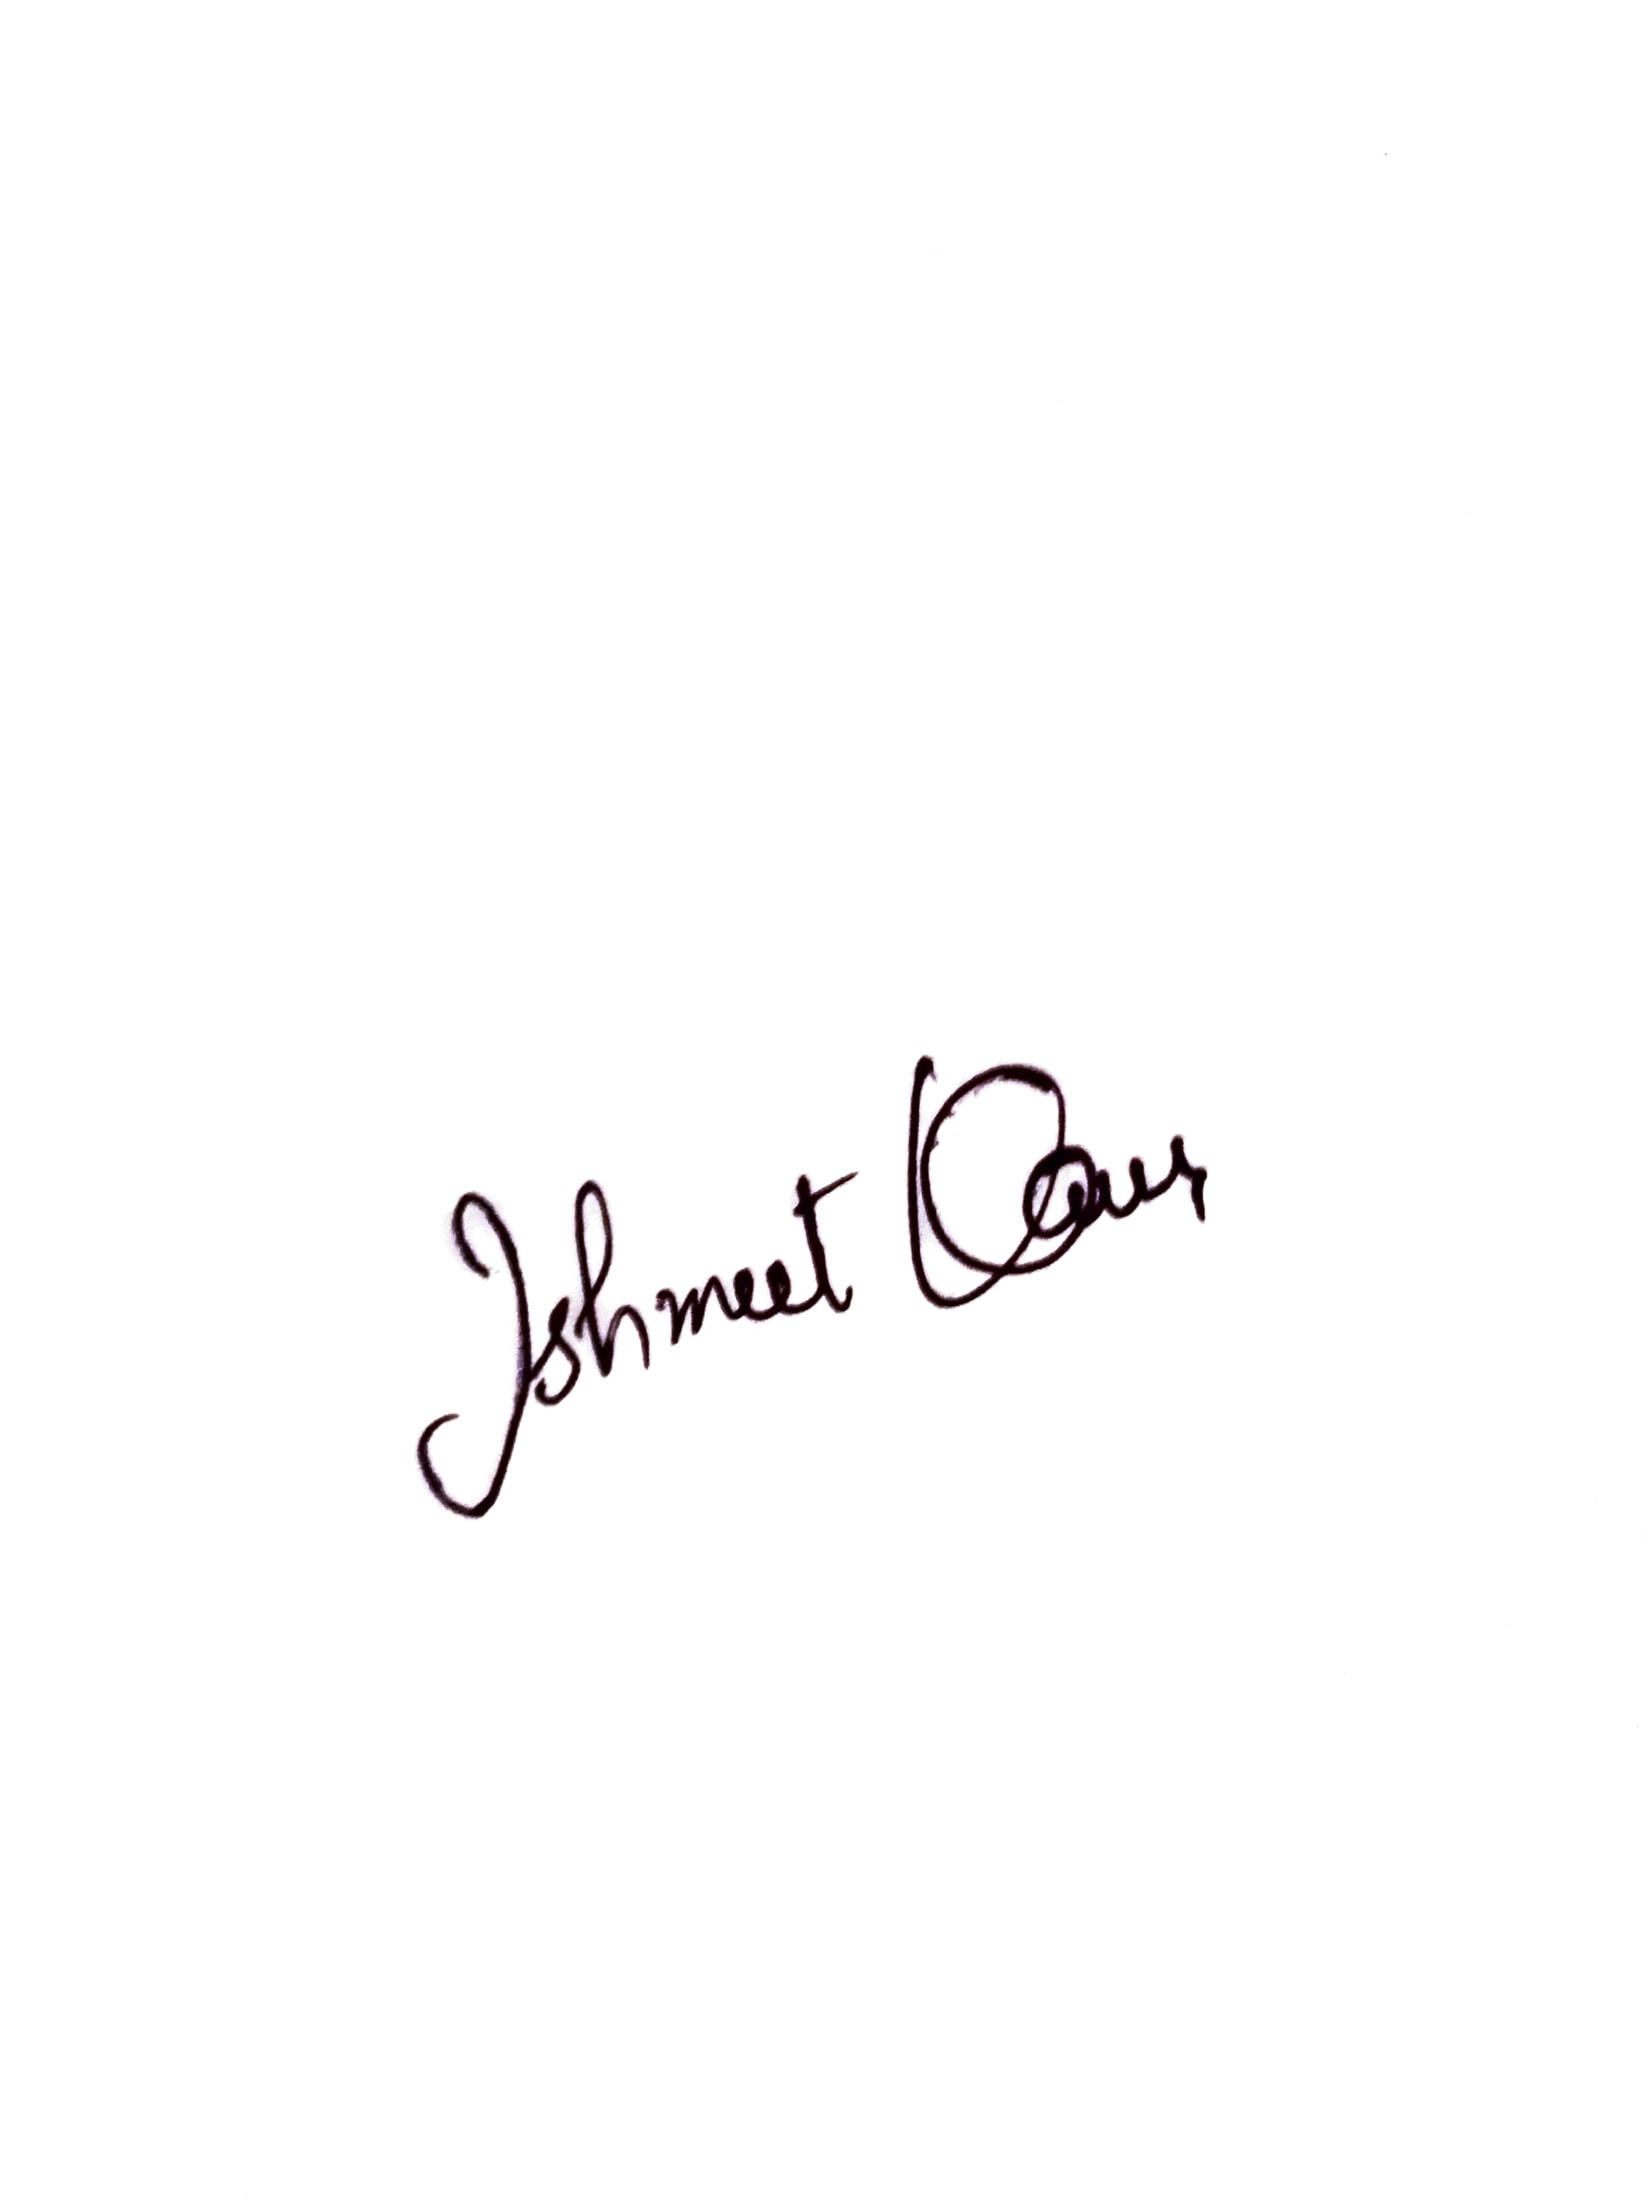 Ishmeet Kaur